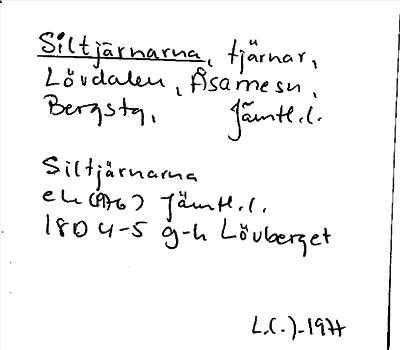 Siltjärnarna, tjärnar,
Lövdalen, Åsarnes sn,
Bergstg, Jämtl.l.
Siltjärnarna
ek (1976) Jämtl.l.
18D 4-5 g-h Lövberget
L.(-)-1977